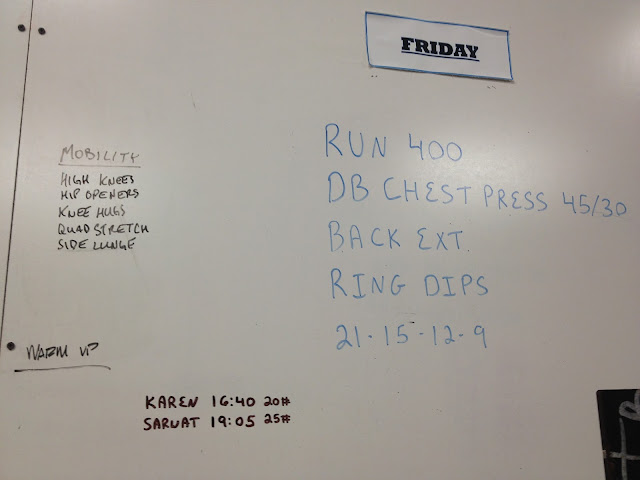 FRIDAY
MOBILITY
HIGH KNEES
HIP OPENERS
KNEE HUGS
QUAD STRETCH
SIDE LUNGE
WARM UP
RUN 400
DB CHEST PRESS 45/30
BACK EXT.
RING DIPS
21-15-12-9
KAREN 16:40 20#
SARVAT 19:05 25#